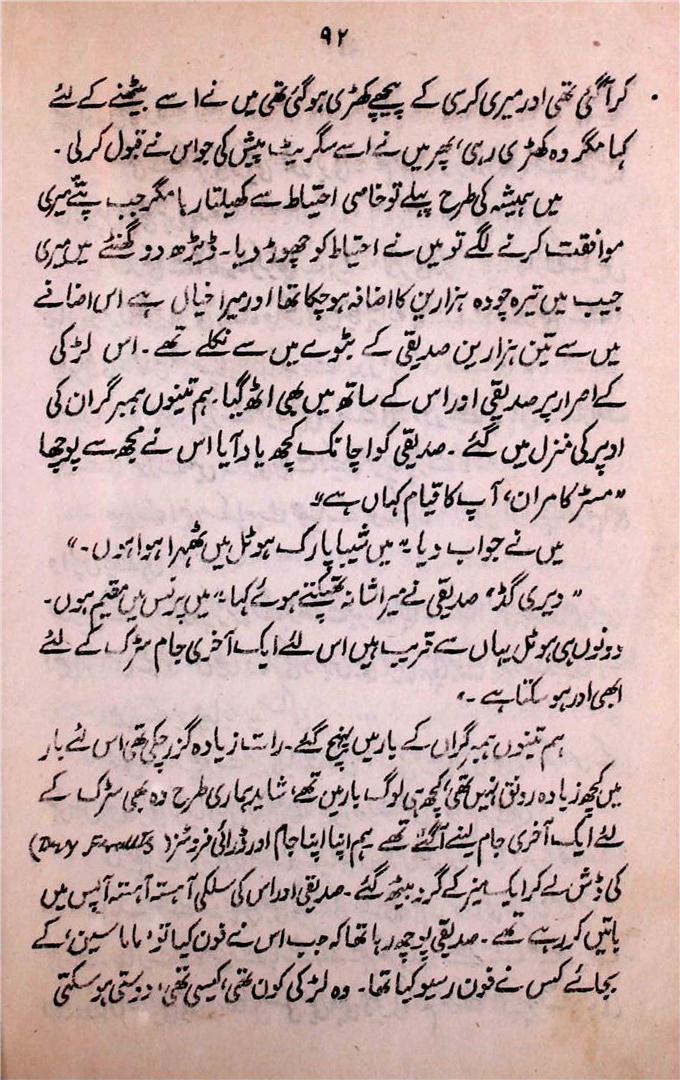 ۹۲
کر آگئی تھی اور میری کرسی کے پیچھے کھڑی ہوگئی تھی میں نے اسے بیٹھنے کے لئے
کہا مگر وہ کھڑی رہی، پھر میں نے اسے سگریٹ پیش کی جو اس نے قبول کرلی۔
میں ہمیشہ کی طرح پہلے تو خاصی احتیاط سے کھیلتا رہا مگر جب پتّے میری
موافقت کرنے لگے تو میں نے احتیاط کو چھوڑ دیا۔ ڈیڑھ دو گھنٹے میں میری
جیب میں تیرہ چودہ ہزار ین کا اضافہ ہوچکا تھا اور میرا خیال ہے اس اضافے
میں سے تین ہزار ین صدیقی کے بٹوے میں سے نکلے تھے۔ اس لڑکی
کے اصرار پر صدیقی اور اس کے ساتھ میں بھی اٹھ گیا۔ ہم تینوں ہمبرگران کی
اوپر کی منزل میں گئے۔ صدیقی کو اچانک کچھ یاد آیا اس نے مجھ سے پوچھا
”مسٹر کامران، آپ کا قیام کہاں ہے“
میں نے جواب دیا ”میں شیبا پارک ہوٹل میں ٹھہرا ہوا ہوں۔“
”ویری گڈ“ صدیقی نے میرا شانہ تھپکتے ہوئے کہا ”میں پرنس میں مقیم ہوں۔
دونوں ہی ہوٹل یہاں سے قریب ہیں اس لئے ایک آخری جام سڑک کے لئے
ابھی اور ہوسکتا ہے۔“
ہم تینوں ہمبرگراں کے بار میں پہنچ گئے۔ رات زیادہ گزر چکی تھی اس لئے بار
میں کچھ زیادہ رونق نہیں تھی، کچھ ہی لوگ بار میں تھے، شاید ہماری طرح وہ بھی سڑک کے
لئے ایک آخری جام لینے آگئے تھے ہم اپنا اپنا جام اور ڈرائی فروٹز (
کی ڈش لے کر ایک میز کے گرد بیٹھ گئے۔ صدیقی اور اس کی سلکی آہستہ آہستہ آپس میں
باتیں کررہے تھے۔ صدیقی پوچھ رہا تھا کہ جب اس نے فون کیا تو ’ماما سین‘ کے
بجائے کس نے فون رسیو کیا تھا۔ وہ لڑکی کون تھی، کیسی تھی، دوستی ہوسکتی